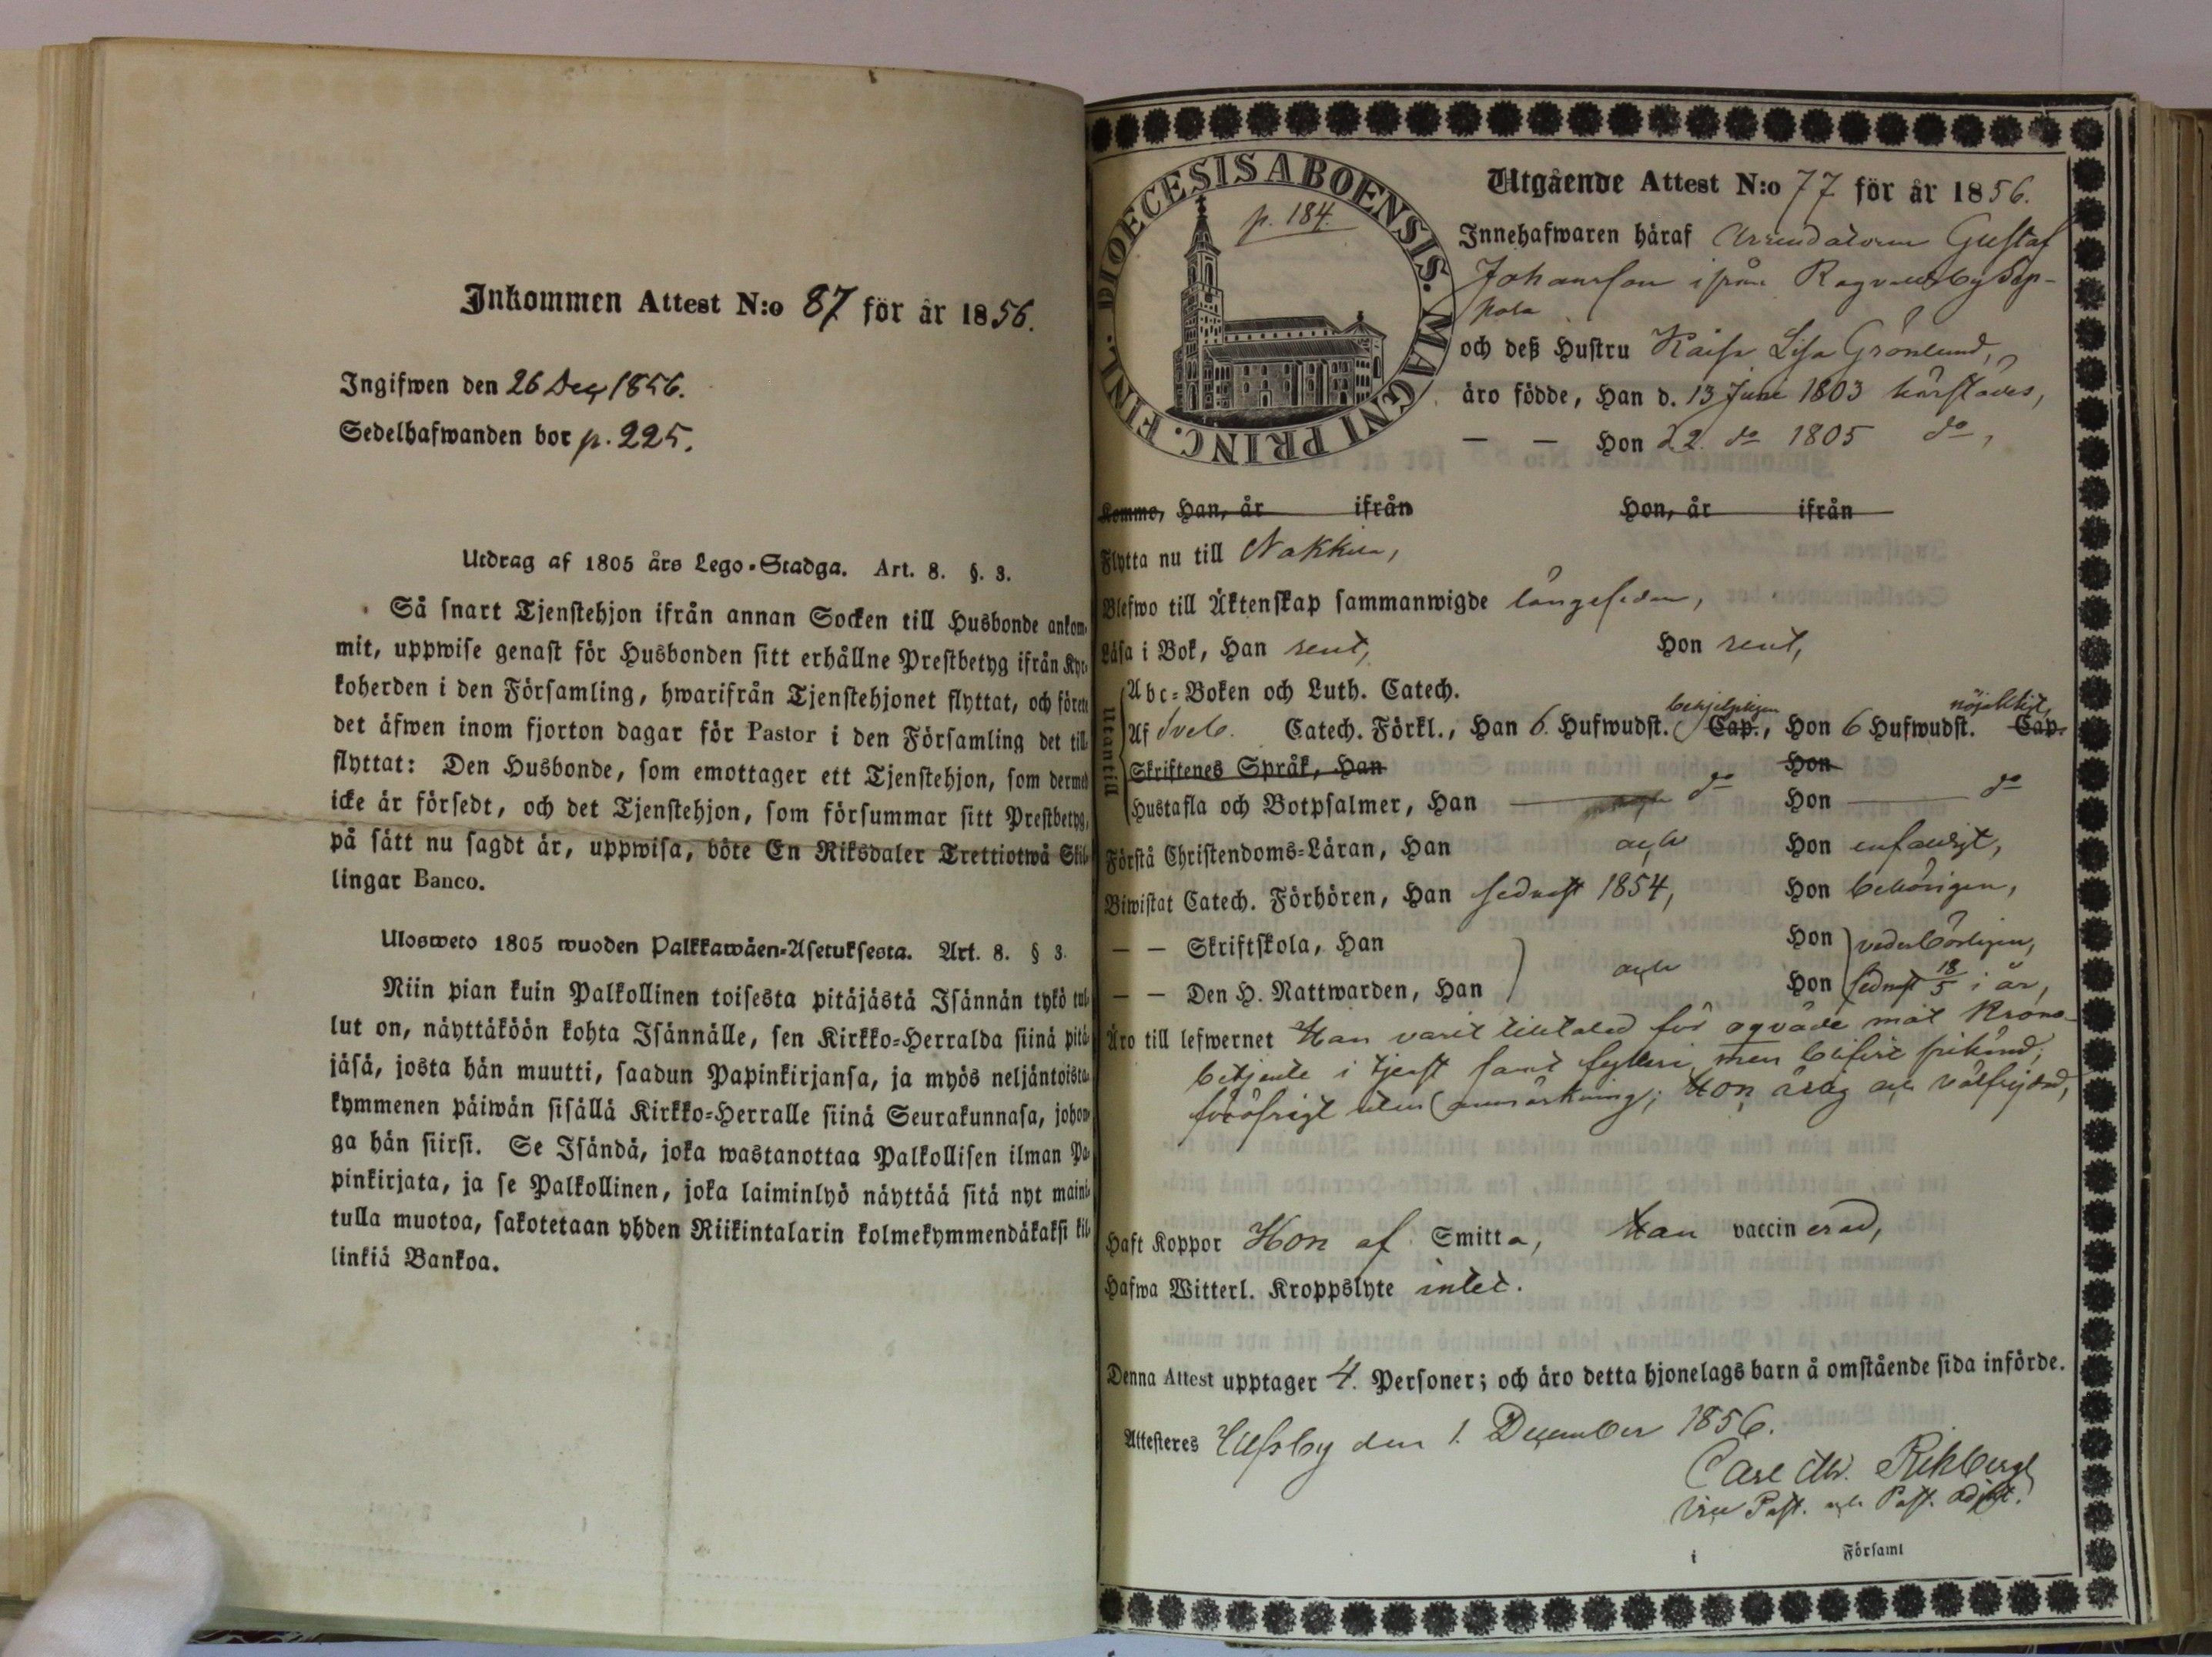 Inkommen Attest N:o 87 för år 1856.
Ingifwen den 26 Dec 1856.
Sedelhafwanden bor p. 225.
Utdrag af 1805 års Lego-Stadga. Art. 8. §. 3.
Så snart Tjenstehjon ifrån annan Socken till Husbonde ankom-
mit, uppwise genast för Husbonden sitt erhållne Prestbetyg ifrån Kyr-
koherden i den Församling, hwarifrån Tjenstehjonet flyttat, och förete
det äfwen inom fjorton dagar för Pastor i den Församling det till-
flyttat: Den Husbonde, som emottager ett Tjenstehjon, som dermed
icke är försedt, och det Tjenstehjon, som försummar sitt Prestbetyg,
på sätt nu sagdt är, uppwisa, böte En Riksdaler Trettiotwå Skil-
lingar Banco.
Ulosweto 1805 wuoden Palkkawäen-Asetuksesta. Art. 8. § 3.
Niin pian kuin Palkollinen toisesta pitäjästä Isännän tykö tul-
lut on, näyttäköön kohta Isännälle, sen Kirkko-Herralda siinä pitä-
jäsä, josta hän muutti, saadun Papinkirjansa, ja myös neljäntoista-
kymmenen päiwän sisällä Kirkko-Herralle siinä Seurakunnasa, johon-
ga hän siirsi. Se Isändä, joka wastanottaa Palkollisen ilman Pa-
pinkirjata, ja se Palkollinen, joka laiminlyö näyttää sitä nyt maini-
tulla muotoa, sakotetaan yhden Riikintalarin kolmekymmendäkaksi kil-
linkiä Bankoa.
DIOECESIS ABOENSIS. MAGNI PRINC. FINL.
p. 184.
Utgående Attest N:o 77 för år 1856.
Innehafwaren häraf Arrendatorn Gustaf
Johansson ifrån Ragvaldsby Sep-
pola
och deß Hustru Kaisa Lisa Grönlund,
äro födde, Han d. 13 Juni 1803 härstädes,
— — Hon d. 2 do 1805 do,
Kommo, Han, år ifrån Hon, år ifrån
Flytta nu till Nakkila,
Blefwo till Äktenskap sammanwigde längesedan,
Läsa i Bok, Han rent, Hon rent,
Utantill
Abc-Boken och Luth. Catech.
behjelpligen nöjaktigt,
Af Sveb. Catech. Förkl., Han 6. Hufwudst. Cap., Hon 6 Hufwudst. Cap.
Skriftenes Språk, Han Hon
Hustafla och Botpsalmer, Han do Hon do
Förstå Christendoms-Läran, Han och Hon enfaldigt,
Biwistat Catech. Förhören, Han sednast 1854, Hon behörigen,
— — Skriftskola, Han Hon vederbörligen,
— — Den H. Nattwarden, Han och Hon sednast 18/5 i år,
Äro till lefwernet Han varit tilltalad för oqväde mot Krono-
betjente i tjenst samt fylleri, men blifvit frikänd;
föröfrigt utan anmärkning; Hon ärlig och välfrejdad,
Haft Koppor Hon af Smitta, Han vaccinerad,
Hafwa Witterl. Kroppslyte intet.
Denna Attest upptager 4. Personer; och äro detta hjonelags barn å omstående sida införde.
Attesteres Ulfsby den 1. December 1856.
Carl Rehbergh
Vice Past. och Past. Adjkt.
i Församl